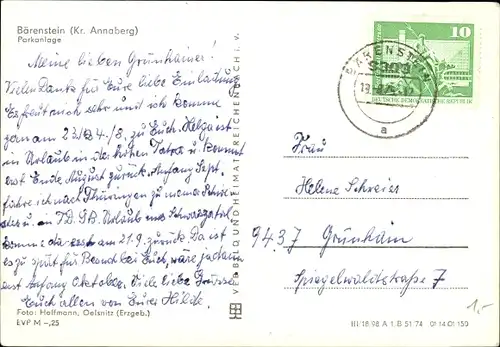 Bärenstein (Kr. Annaberg)
Parkanlage
Meine lieben Grünhainer!
Vielen Dank für Eure liebe Einladung
Erfreut mich sehr und ich komme
gern am 23./24./8. zu Euch. Helga ist
im Urlaub in der hohen Tatra u. kommt
erst Ende August zurück. Anfang Sept.
fahre ich nach Thüringen zu meine
u. in Urlaub
komme da erst am 21.9. zurück. Da ist
es zu spät für Besuch bei Euch, wäre ja dann
erst Anfang Oktober. Viele liebe Grüsse
Euch allen von Eurer Hilde.
Foto: Hoffmann, Oelsnitz (Erzgeb.)
EVP M –,25
VERLAG BILD UND HEIMAT REICHENBACH I. V.
10
DEUTSCHE DEMOKRATISCHE REPUBLIK
BÄRENSTEIN
9309
a
Frau
Helene Schreier
9437 Grünhain
Spiegelwaldstraße 7
1,-
III/18/98 A 1 B 51/74 01 14 01 159